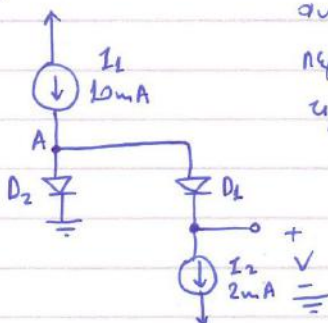 I1
10mA
A
D2
D1
+
I2
2mA
V
-